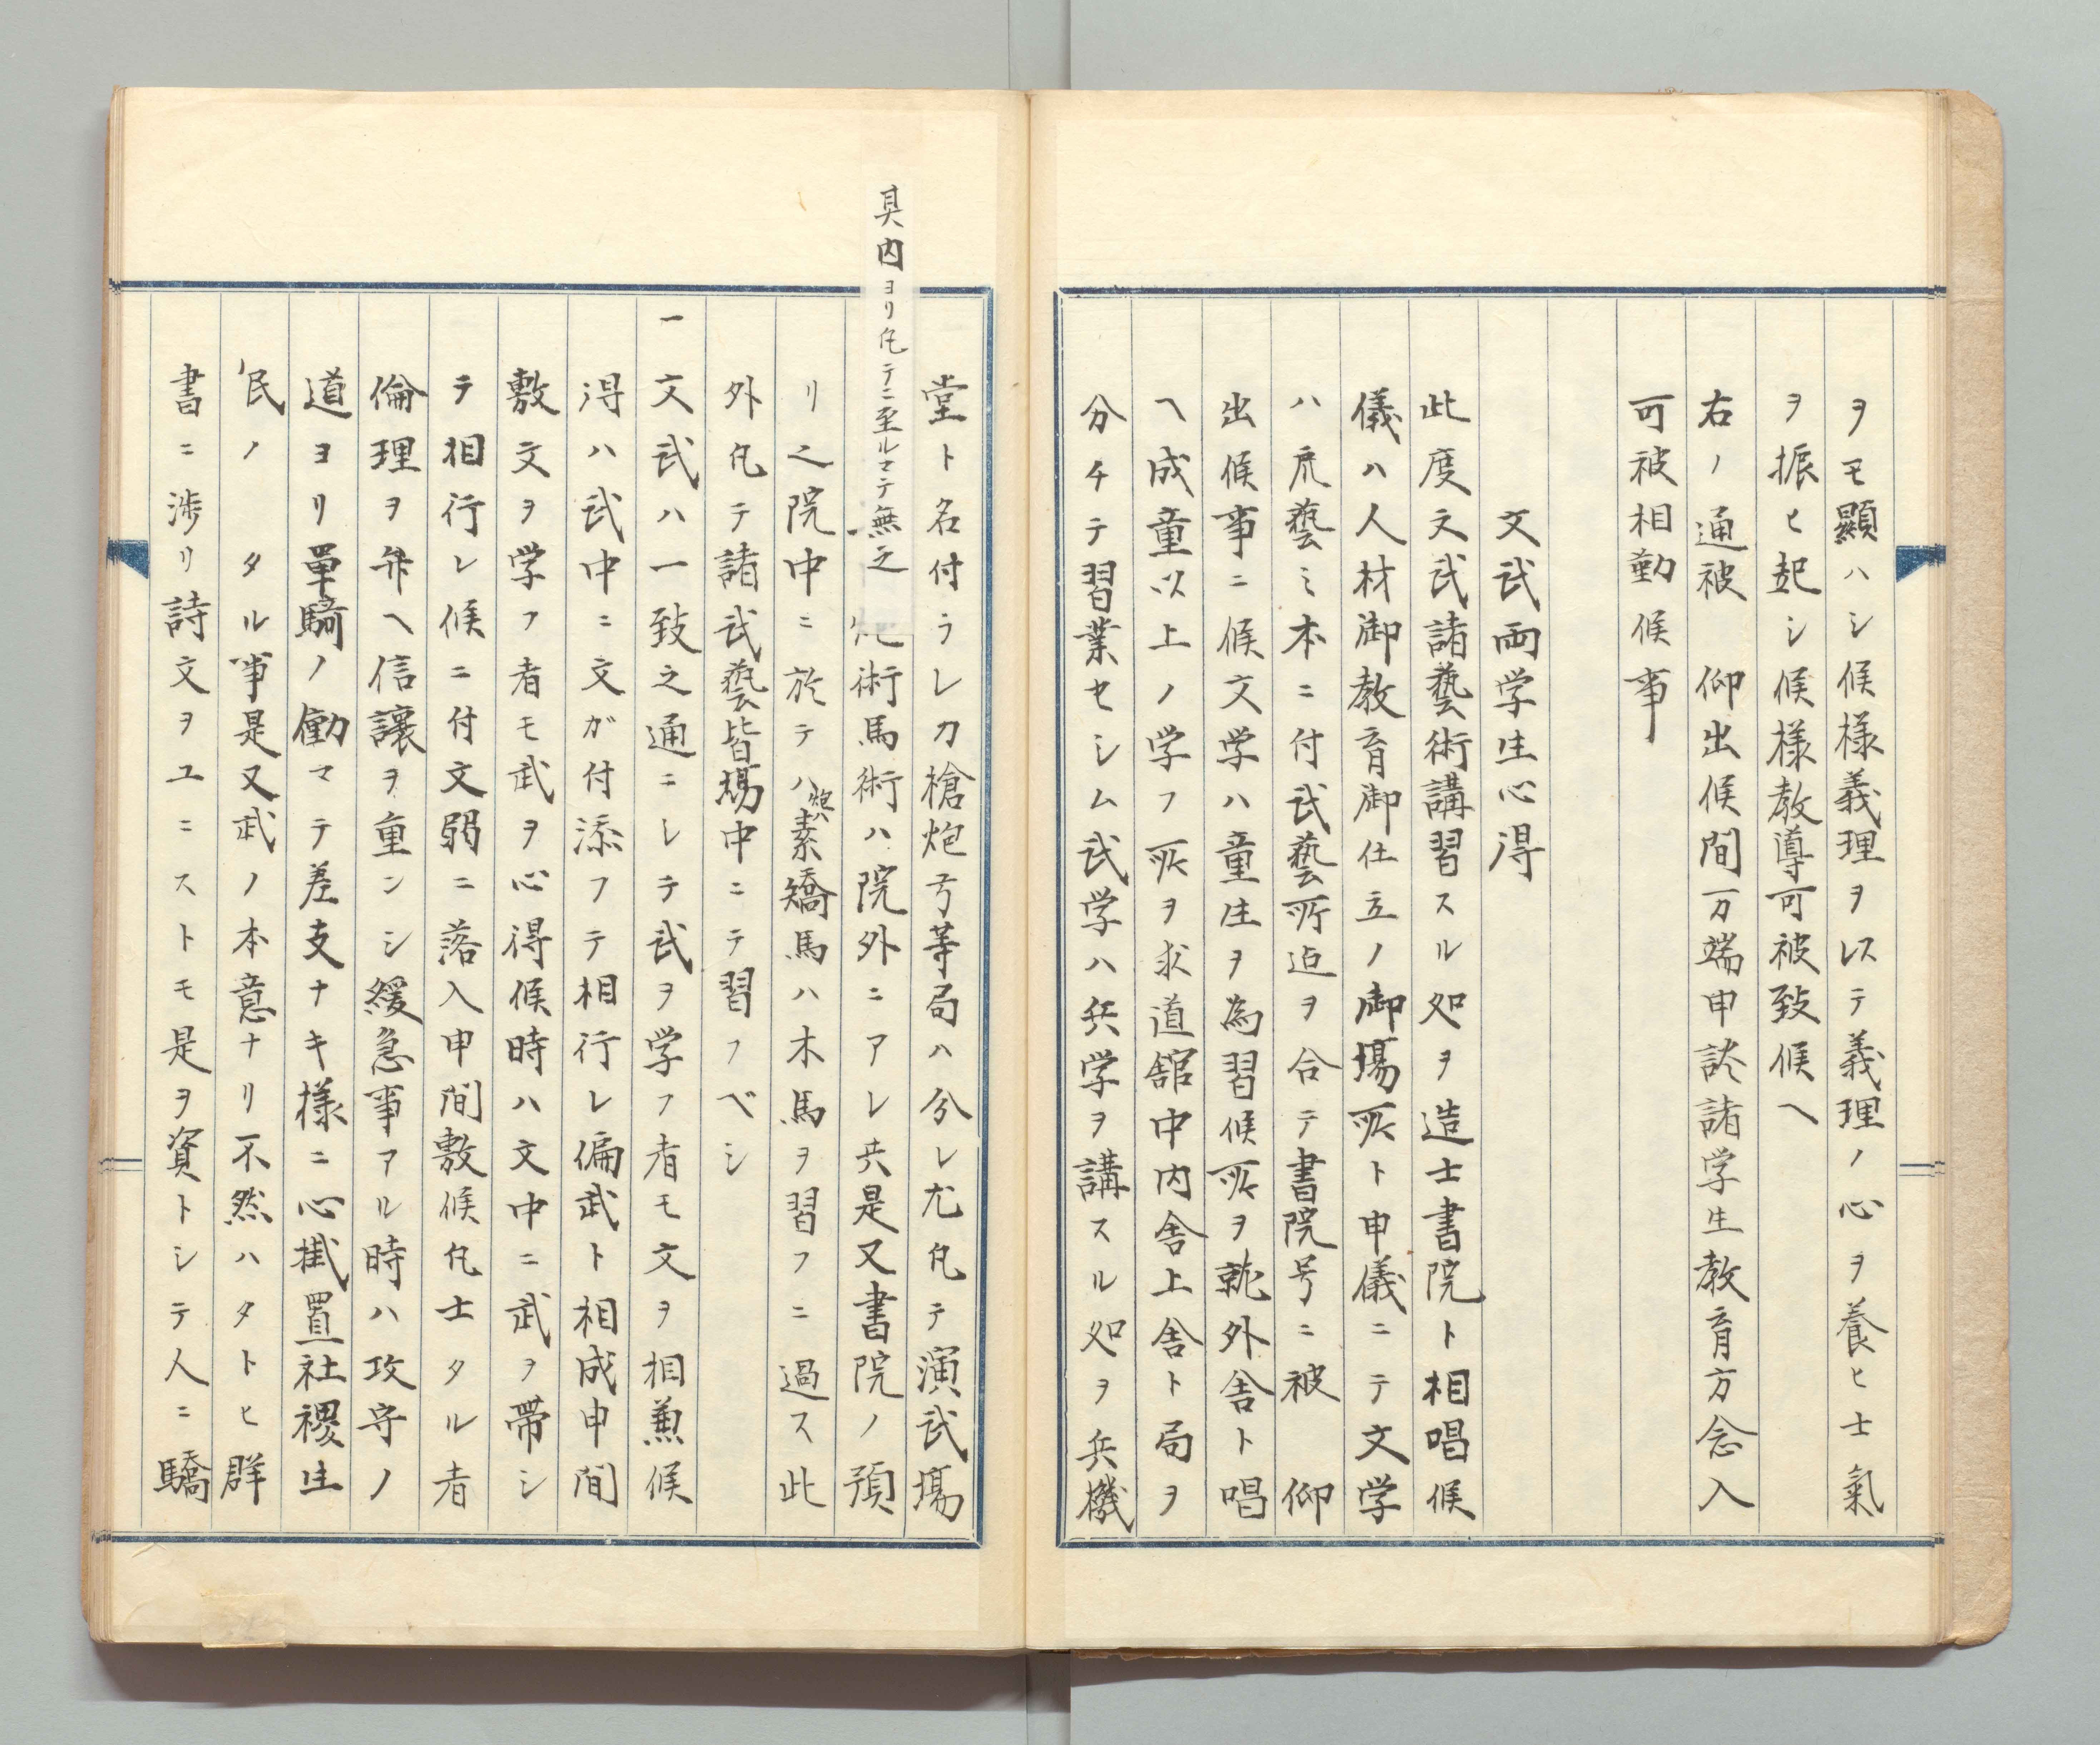 ヲモ顯ハシ候様義理ヲ以ステ義理ノ心ヲ養ヒ士氣
ヲ振ヒ起シ候様教導可被致候ヘ
右ノ通被　仰出候間万端申談諸学生教育方念入
可被相勤候事
文武両学生心得
此度文武諸藝術講習スル処ヲ造士書院ト相唱候
儀ハ人材御教育御仕立ノ御場所ト申儀ニテ文学
ハ庶藝ミ本ニ付武藝所迠ヲ合テ書院号ニ被　仰
出候事ニ候文学ハ童生ヲ為習候所ヲ就外舎ト唱
ヘ成童以上ノ学フ所ヲ求道舘中内舎上舎ト局ヲ
分チテ習業セシム武学ハ兵学ヲ講スル処ヲ兵機
堂ト名付ラレ刀槍炮弓等局ハ分レ尤凡テ演武場
其内ヨリ凡テニ至ルマテ一無之
炮術馬術ハ院外ニアレ共是又書院ノ預
リ之院中ニ於テハ素矯馬ハ木馬ヲ習フニ過ス此
外凡テ諸武藝皆場中ニテ習フベシ
一文武ハ一致之通ニシテ武ヲ学フ者モ文ヲ相兼候
得ハ武中ニ文ガ付添フテ相行レ偏武ト相成申間
敷文ヲ学フ者モ武ヲ心得候時ハ文中ニ武ヲ帶シ
テ相行レ候ニ付文弱ニ落入申間敷候凡士タル者
倫理ヲ弁ヘ信讓ヲ重ンシ緩急事アル時ハ攻守ノ
道ヨリ單騎ノ働マテ差支ナキ様ニ心掛置社稷生
民ノ　タル事是又武ノ本意ナリ不然ハタトヒ群
書ニ渉リ詩文ヲユニストモ是ヲ資トシテ人ニ驕